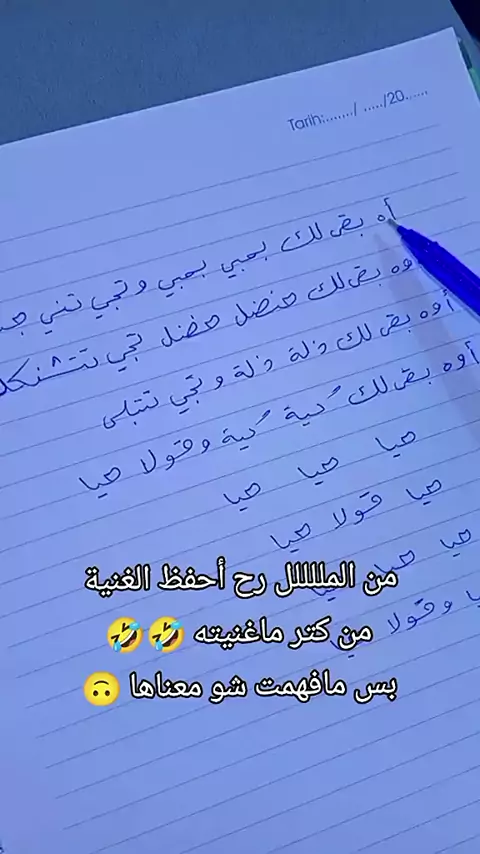 Tarih:......./ ...../20......
أه بقى لك بحبي بحبي و تجي تني
أوه بقى لك حنضل حنضل تجي تتشنكل
أوه بقى لك ذلة ذلة و تجي تتبلى
أوه بقى لك كية كية وقولا هيا
هيا هيا هيا
هيا قولا هيا
هيا هيا
وقولا
من الملللللل رح أحفظ الغنية
من كتر ماغنيته 🤣🤣
بس مافهمت شو معناها 🙃